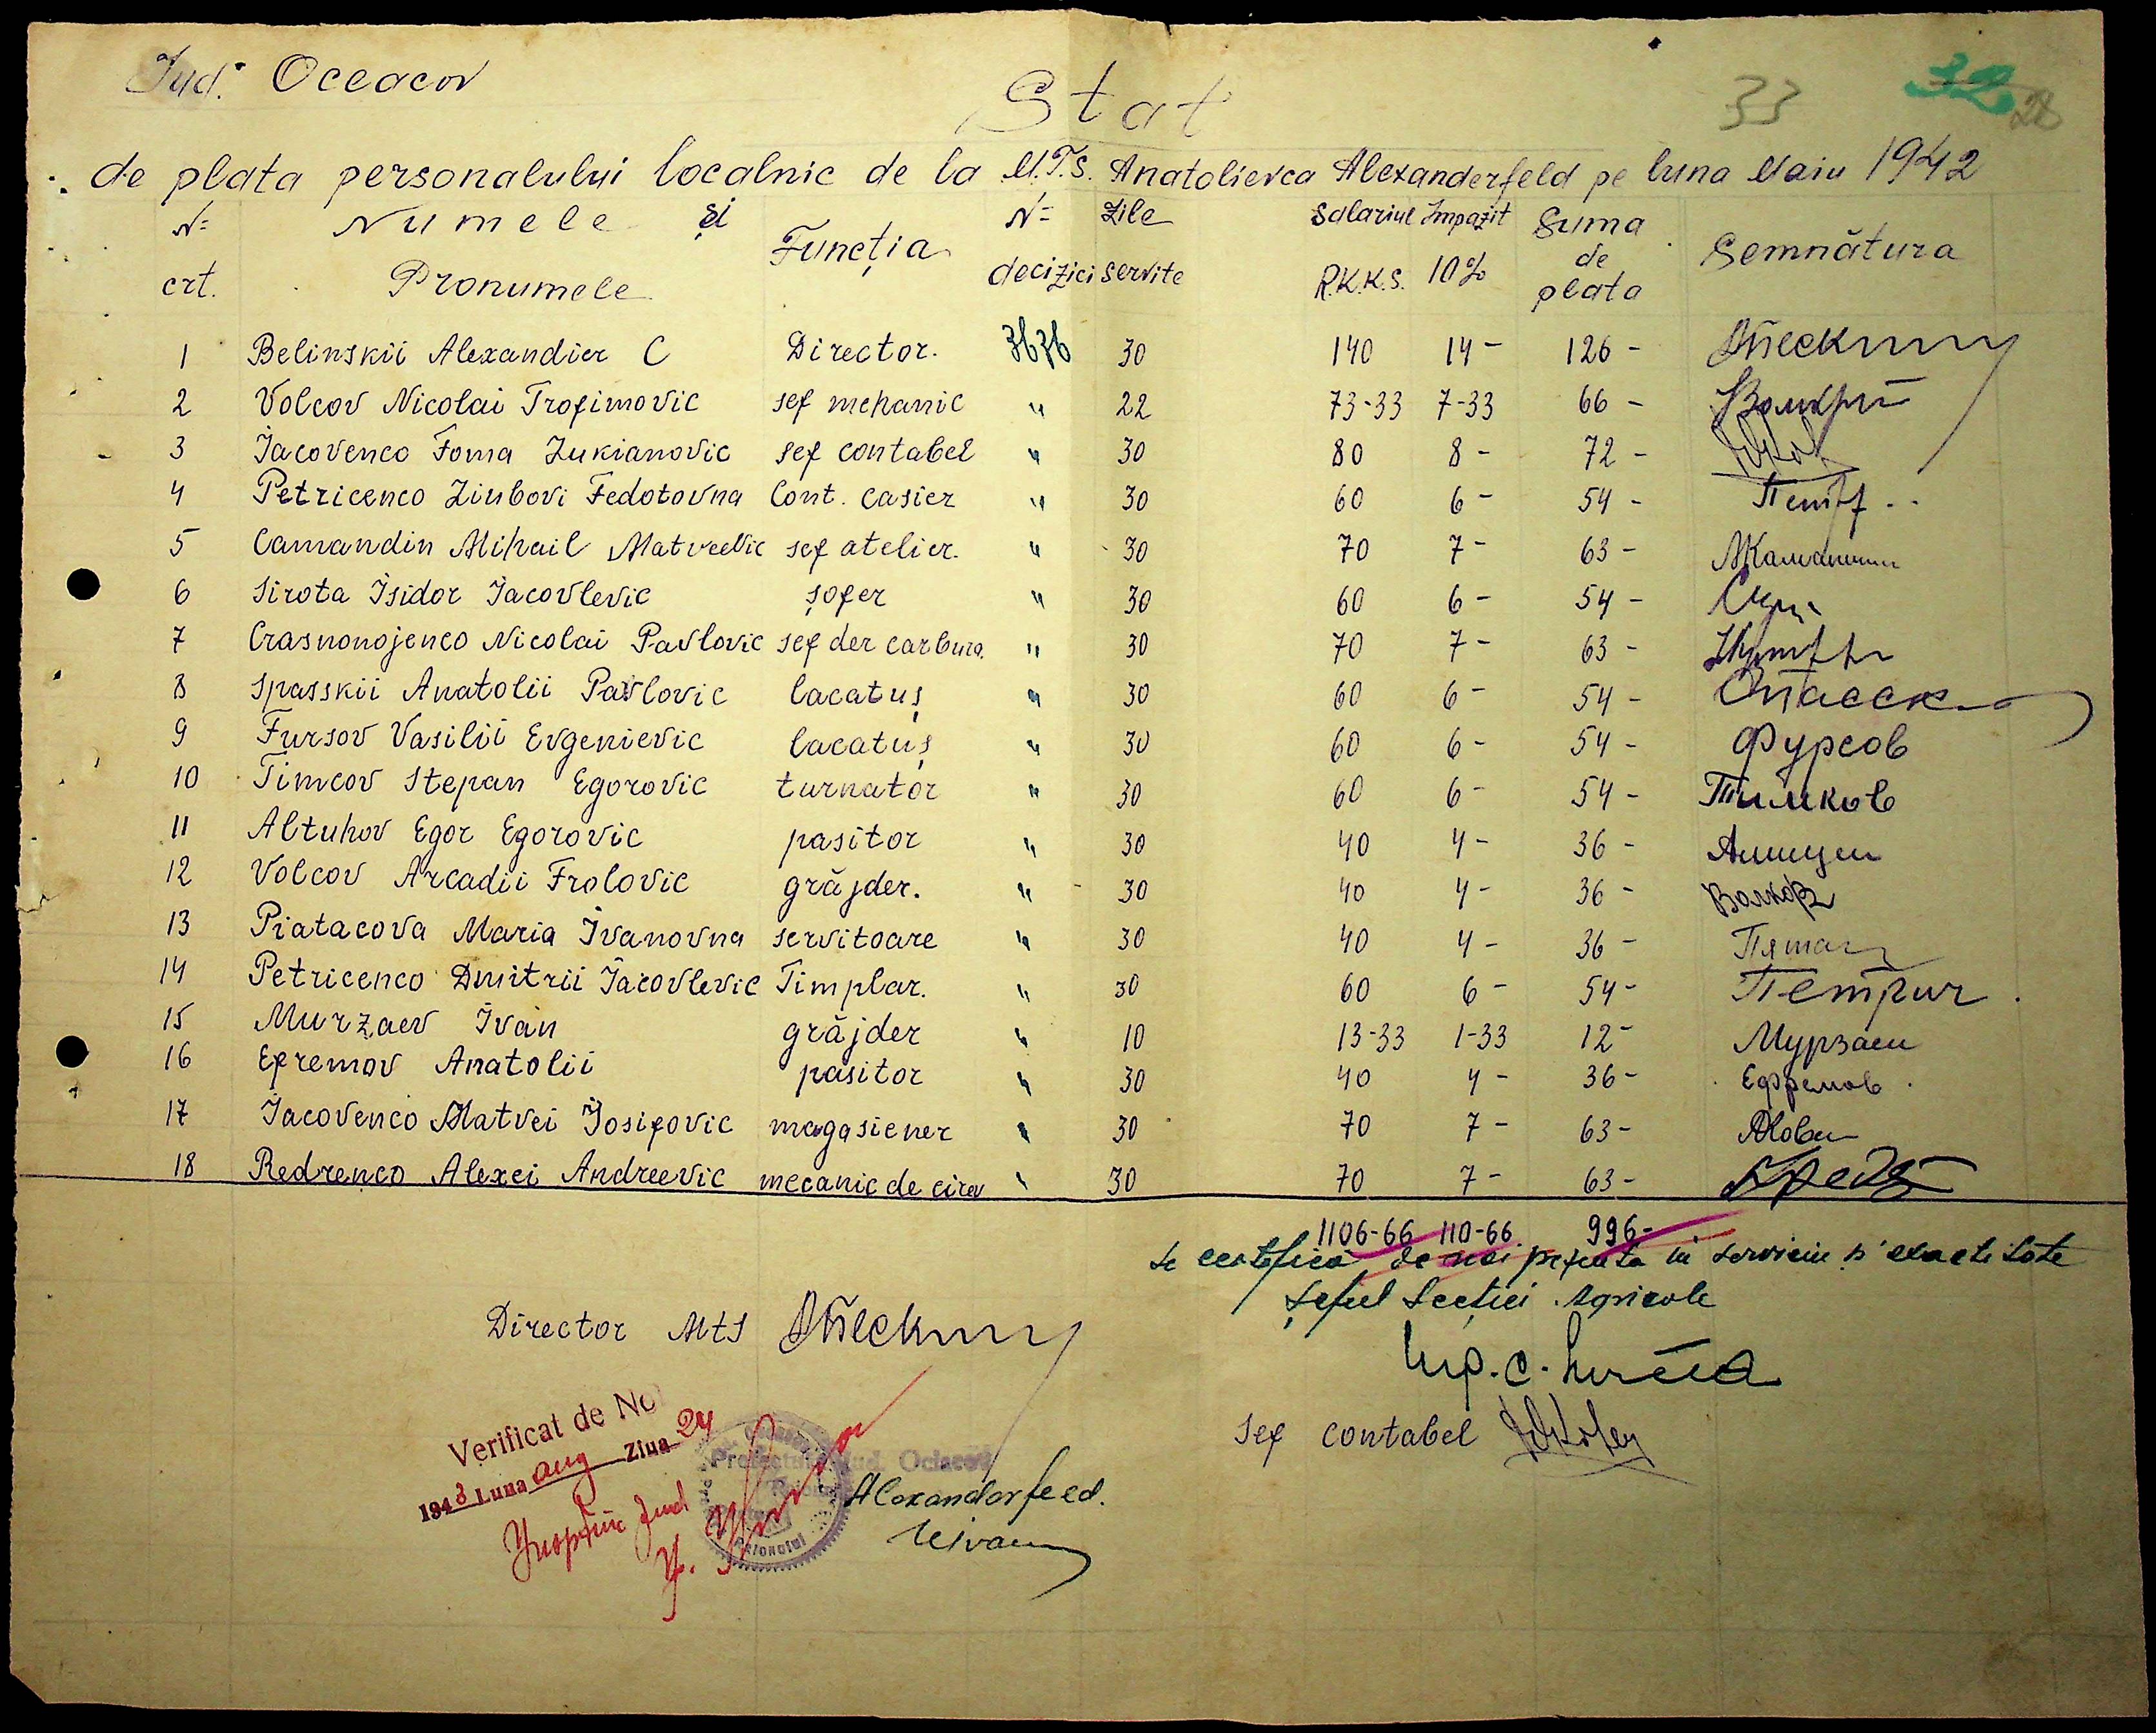 Jud. Oceacov
Stat
33 32 28
de plata personalului localnic de la M.T.S. Anatolievca Alexanderfeld pe luna Maiu 1942
№ crt. Numele și Pronumele Funcția № deciziei Zile servite Salariul R.K.K.S. Impozit 10% Suma de plata Semnătura
1 Belinskii Alexandier C Director. 3636 30 140 14- 126-
2 Volcov Nicolai Trofimovic sef mehanic " 22 73-33 7-33 66-
3 Iacovenco Foma Lukianovic sef contabel " 30 80 8- 72-
4 Petricenco Liubovi Fedotovna Cont. casier " 30 60 6- 54- Петр
5 Camandin Mihail Matveevic sef atelier. " 30 70 7- 63-
6 Sirota Isidor Iacovlevic șofer " 30 60 6- 54-
7 Crasnonojenco Nicolai Pavlovic sef der carbura. " 30 70 7- 63-
8 Spasskii Anatolii Pavlovic lacatuș " 30 60 6- 54- Спасск
9 Fursov Vasilii Evgenievic lacatuș " 30 60 6- 54- Фурсов
10 Timcov Stepan Egorovic turnator " 30 60 6- 54- Тимков
11 Altuhov Egor Egorovic pasitor " 30 40 4- 36-
12 Volcov Arcadii Frolovic grăjder. " 30 40 4- 36- Волков
13 Piatacova Maria Ivanovna servitoare " 30 40 4- 36- Пятак
14 Petricenco Dmitrii Iacovlevic Timplar. " 30 60 6- 54- Петрич
15 Murzaev Ivan grăjder " 10 13-33 1-33 12- Мурзаев
16 Efremov Anatolii pasitor " 30 40 4- 36- Ефремов
17 Iacovenco Matvei Iosifovic magasiener " 30 70 7- 63-
18 Redrenco Alexei Andreevic mecanic de cirev " 30 70 7- 63-
1106-66 110-66 996-
Se certifică de noi prezenta in serviciu și exactitate
Șeful Secției Agricole
Director MTS
Ing. C.
Sef contabel
Verificat de Noi
1943 Luna aug Ziua 24
Prefectura Jud. Ociacov
Alexanderfeld.